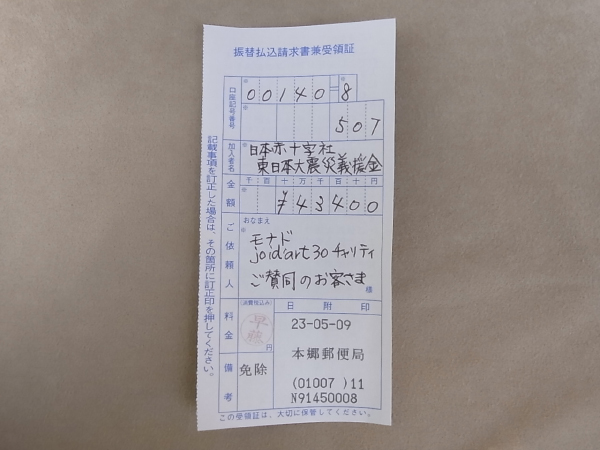 振替払込請求書兼受領証
口座記号番号
※ 00140=8 ※
507
加入者名
※ 日本赤十字社
東日本大震災義援金
金額
千百十万千百十円
※ ¥43400
ご依頼人
おなまえ
※ モナド
joid'art 30 チャリティ
ご賛同のお客さま
様
料金
(消費税込み)
円
日附印
23-05-09
本郷郵便局
(01007 )11
N91450008
備考
免除
この受領証は、大切に保管してください。
記載事項を訂正した場合は、その箇所に訂正印を押してください。